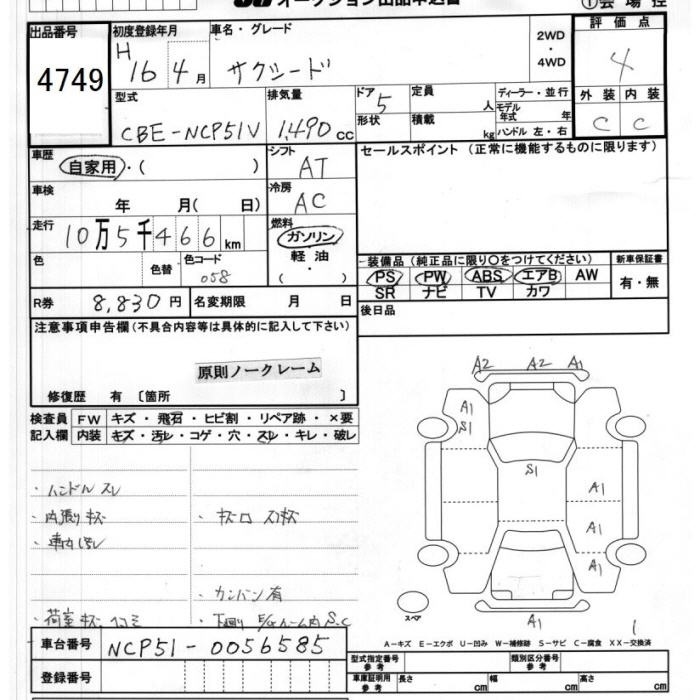 オークション出品申込書 ①会場控
出品番号 初度登録年月 車名・グレード 2WD・4WD 評価点
4749 H 16 4月 サクシード 4
型式 排気量 ドア 定員 人 ディーラー・並行 外装 内装
CBE-NCP51V 1,490 cc 5 形状 積載 kg モデル年式 年 ハンドル 左・右 C C
車歴 自家用・( ) シフト AT セールスポイント (正常に機能するものに限ります)
車検 年 月( 日) 冷房 AC
走行 10万5千466km 燃料 ガソリン 軽油・
色 色替 色コード 058 装備品 (純正品に限り○をつけてください) 新車保証書
PS PW ABS エアB AW 有・無
SR ナビ TV カワ
R券 8,830円 名変期限 月 日 後日品
注意事項申告欄 (不具合内容等は具体的に記入して下さい)
原則ノークレーム
修復歴 有 〔箇所 〕
検査員 FW キズ・飛石・ヒビ割・リペア跡・×要
記入欄 内装 キズ・汚レ・コゲ・穴・スレ・キレ・破レ
A2 A2 A1
A1
S1
S1
A1
A1
A1
A1
・ハンドル スレ
・内張りキズ
・車内汚レ
・カンバン有
・荷室キズ、凹コミ ・下廻り E/gルーム内 S,C
スペア
1
A-キズ E-エクボ U-凹み W-補修跡 S-サビ C-腐食 XX-交換済
車台番号 NCP51-0056585
登録番号
型式指定番号 参考 類別区分番号 参考
車庫証明用 参考 長さ cm 幅 cm 高さ cm